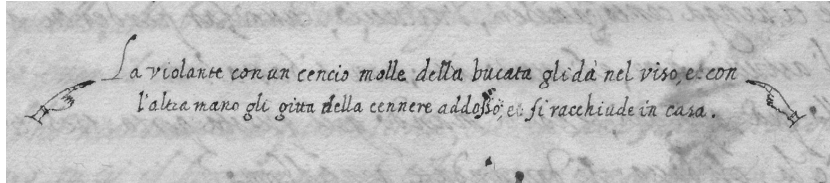 La violante con un cencio molle della bucata gli dà nel viso, et con
l'altra mano gli gitta della cennere addosso, et si racchiude in casa.